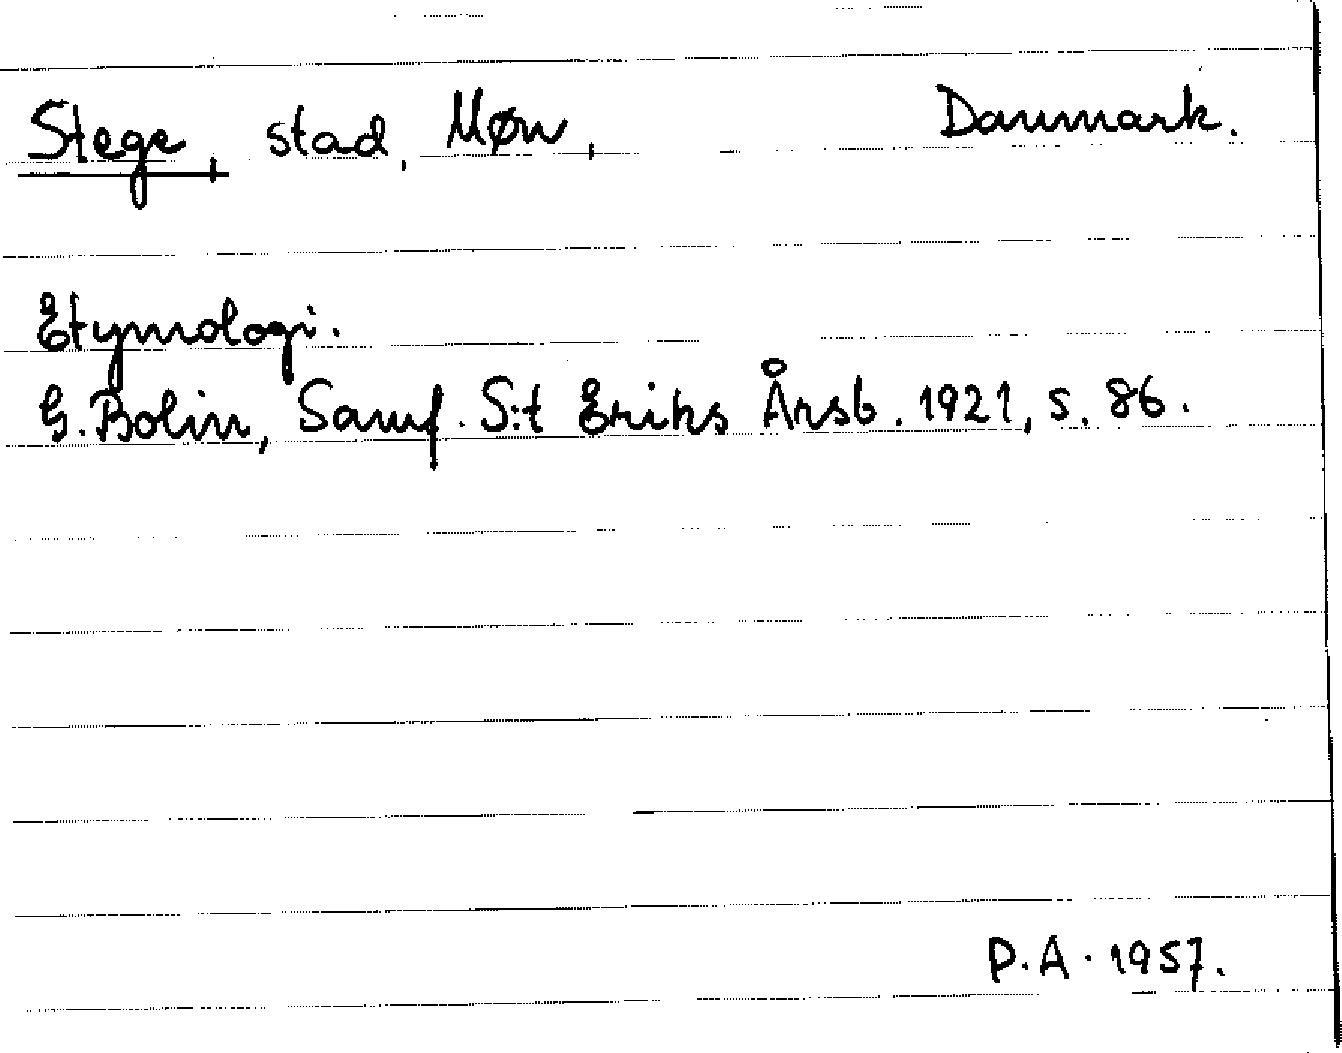 Stege, stad, Møn, Danmark.
Etymologi.
G. Bolin, Samf. S:t Eriks Årsb. 1921, s. 86.
P.A. 1957.